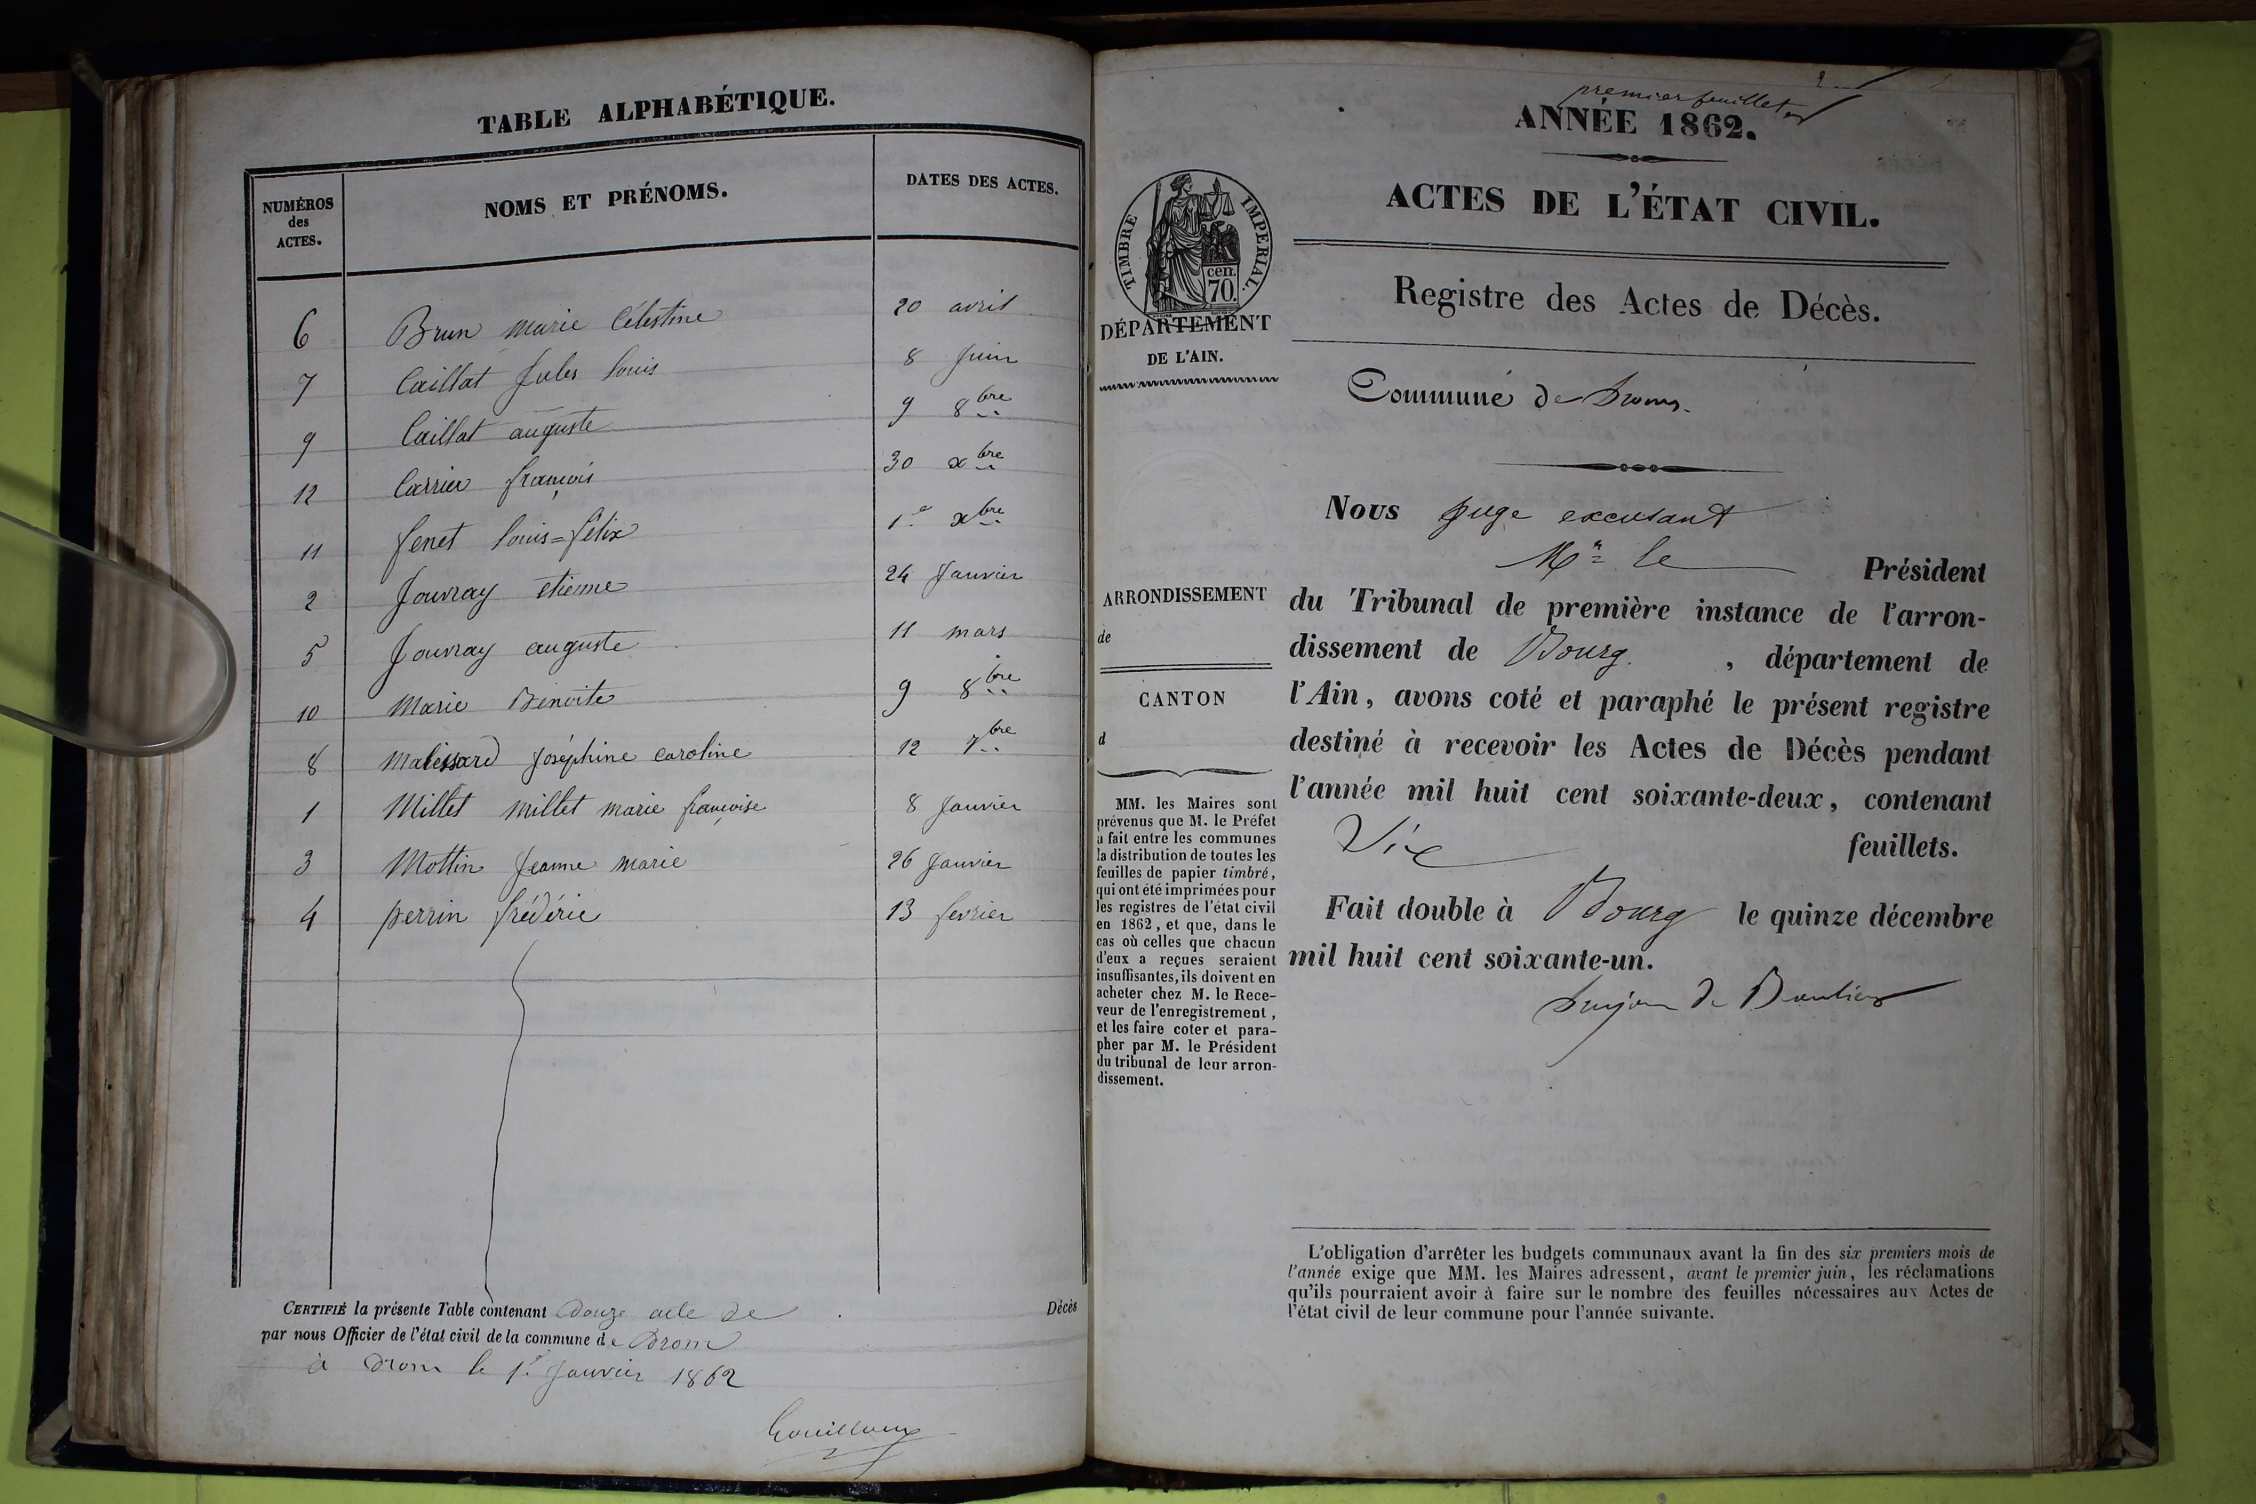 TABLE ALPHABÉTIQUE.
NUMÉROS des ACTES. NOMS ET PRÉNOMS. DATES DES ACTES.
6 Brun marie Célestine 20 avril
7 Caillat Jules Louis 8 Juin
9 Caillat auguste 9 8bre
12 Carrier françois 30 xbre
11 fenet Louis=félix 1er xbre
2 Jouvray etienne 24 Janvier
5 Jouvray auguste 11 mars
10 Marie Benoite 9 8bre
8 Malissard Joséphine caroline 12 7bre
1 Millet millet marie françoise 8 Janvier
3 Mottin Jeanne marie 26 Janvier
4 perrin frédéric 13 fevrier
CERTIFIÉ la présente Table contenant douze acte de Décès
par nous Officier de l'état civil de la commune de Drom
à Drom le 1er Janvier 1862
premier feuillet
ANNÉE 1862.
ACTES DE L'ÉTAT CIVIL.
TIMBRE IMPERIAL.
cen. 70.
DÉPARTEMENT
DE L'AIN.
Registre des Actes de Décès.
Commune de Drom.
Nous Juge excusant
Mr le Président
du Tribunal de première instance de l'arron-
dissement de Bourg, département de
l'Ain, avons coté et paraphé le présent registre
destiné à recevoir les Actes de Décès pendant
l'année mil huit cent soixante-deux, contenant
Six feuillets.
Fait double à Bourg le quinze décembre
mil huit cent soixante-un.
ARRONDISSEMENT
de
CANTON
d
MM. les Maires sont
prévenus que M. le Préfet
a fait entre les communes
la distribution de toutes les
feuilles de papier timbré,
qui ont été imprimées pour
les registres de l'état civil
en 1862, et que, dans le
cas où celles que chacun
d'eux a reçues seraient
insuffisantes, ils doivent en
acheter chez M. le Rece-
veur de l'enregistrement,
et les faire coter et para-
pher par M. le Président
du tribunal de leur arron-
dissement.
L'obligation d'arrêter les budgets communaux avant la fin des six premiers mois de
l'année exige que MM. les Maires adressent, avant le premier juin, les réclamations
qu'ils pourraient avoir à faire sur le nombre des feuilles nécessaires aux Actes de
l'état civil de leur commune pour l'année suivante.